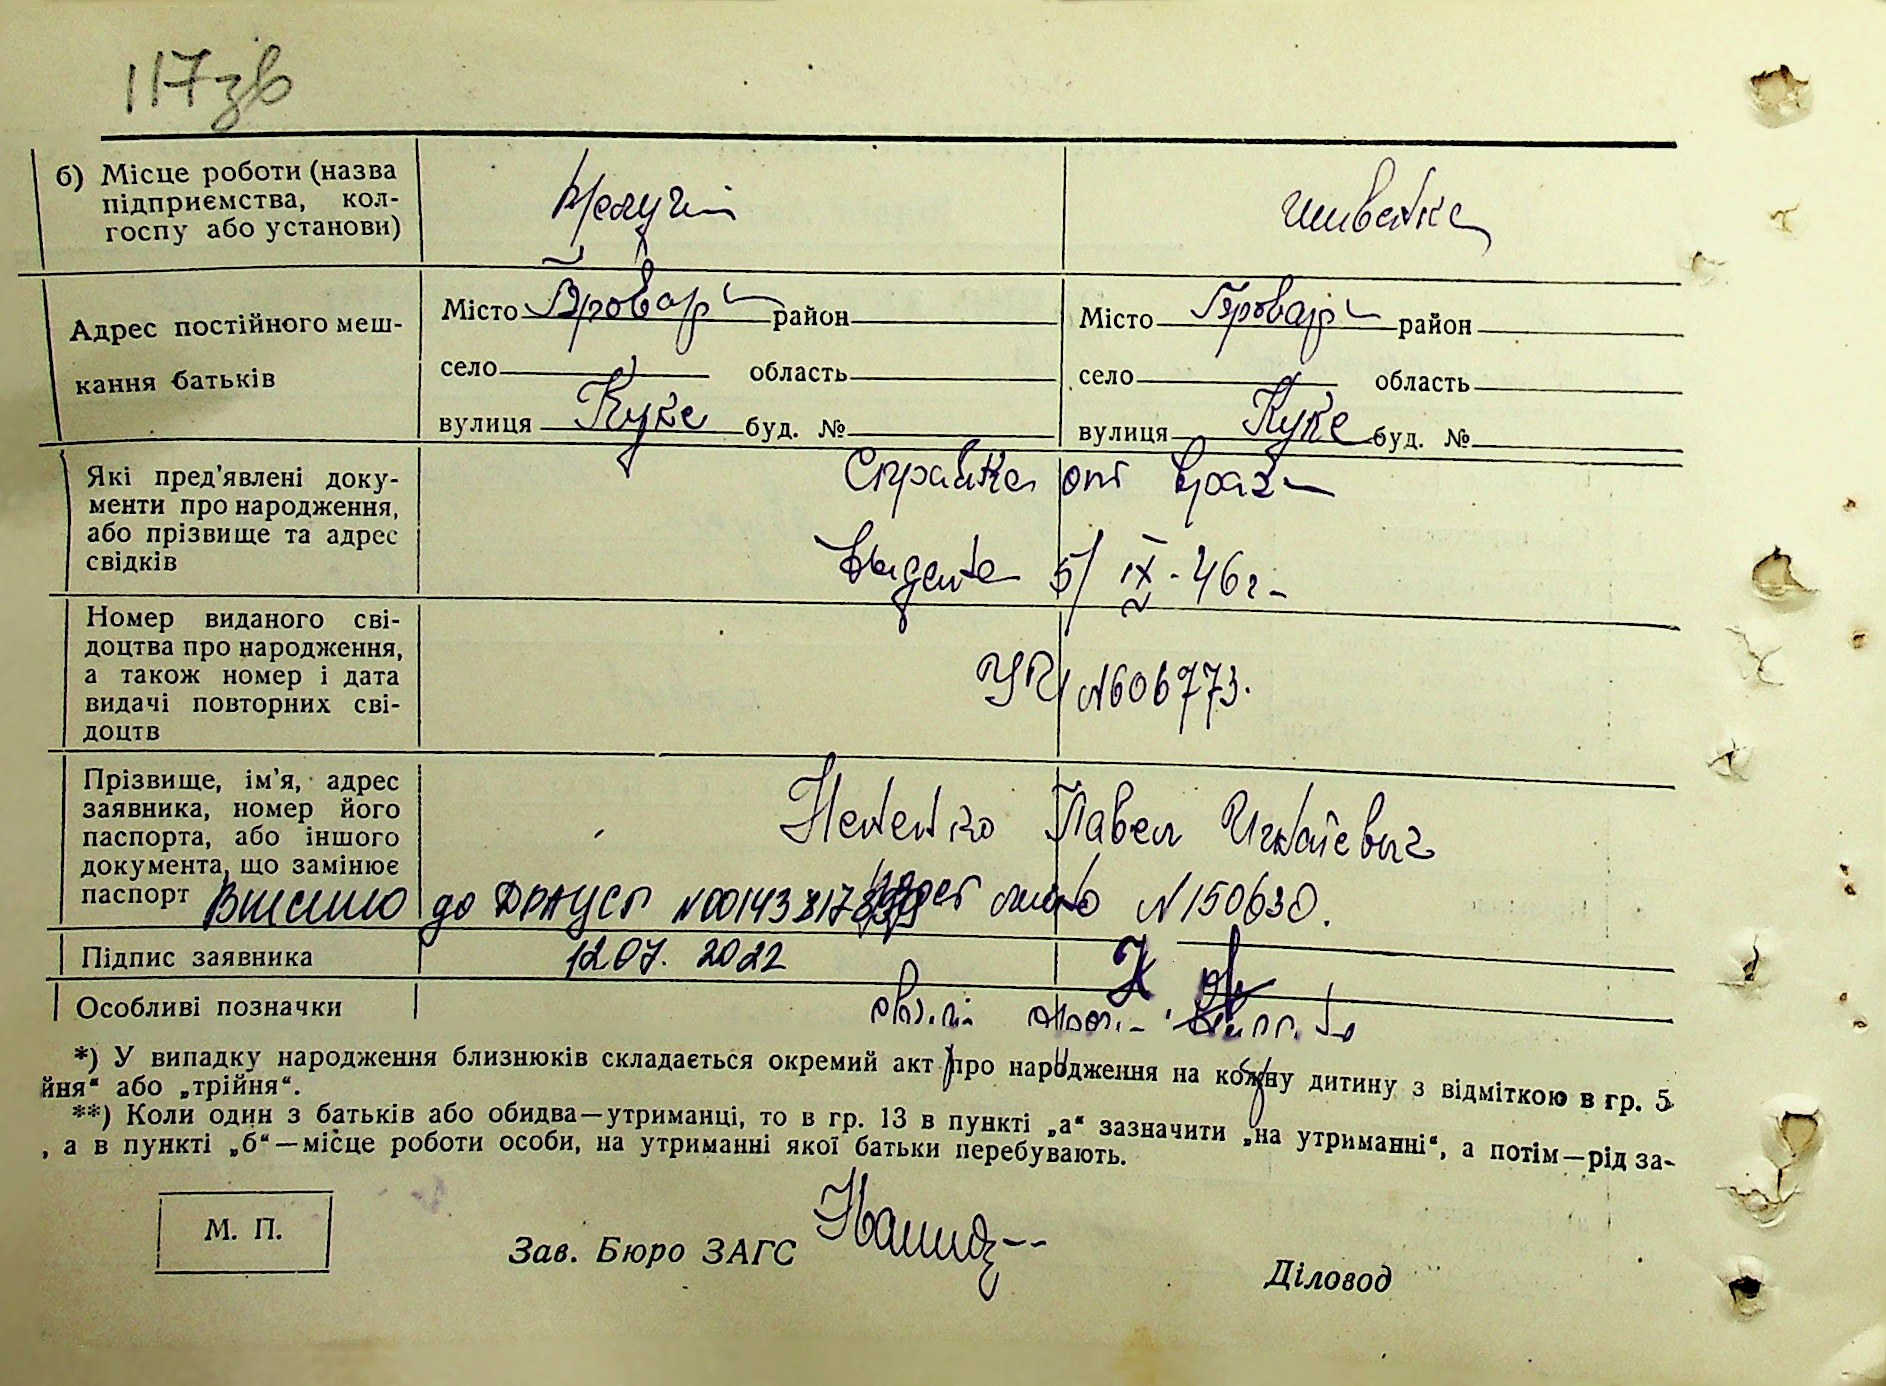 117зв
б) Місце роботи (назва
підприємства, кол-
госпу або установи)
швейка
Адрес постійного меш-
кання батьків
Місто Бровар район
село область
вулиця Куйб буд. №
Місто Бровар район
село область
вулиця буд. №
Які пред'явлені доку-
менти про народження,
або прізвище та адрес
свідків
Справка от врача
выдана 5/IX-46г.
Номер виданого сві-
доцтва про народження,
а також номер і дата
видачі повторних сві-
доцтв
УР N606773.
Прізвище, ім'я, адрес
заявника, номер його
паспорта, або іншого
документа, що замінює
паспорт
Павел Игнатевич
N150630.
Внесено до ДРАЦСГ N00143817
12.07.2022
Підпис заявника
Особливі позначки
*) У випадку народження близнюків складається окремий акт про народження на кожну дитину з відміткою в гр. 5
йня“ або „трійня“.
**) Коли один з батьків або обидва—утриманці, то в гр. 13 в пункті „а“ зазначити „на утриманні“, а потім—рід за-
, а в пункті „б“—місце роботи особи, на утриманні якої батьки перебувають.
М. П.
Зав. Бюро ЗАГС
Діловод